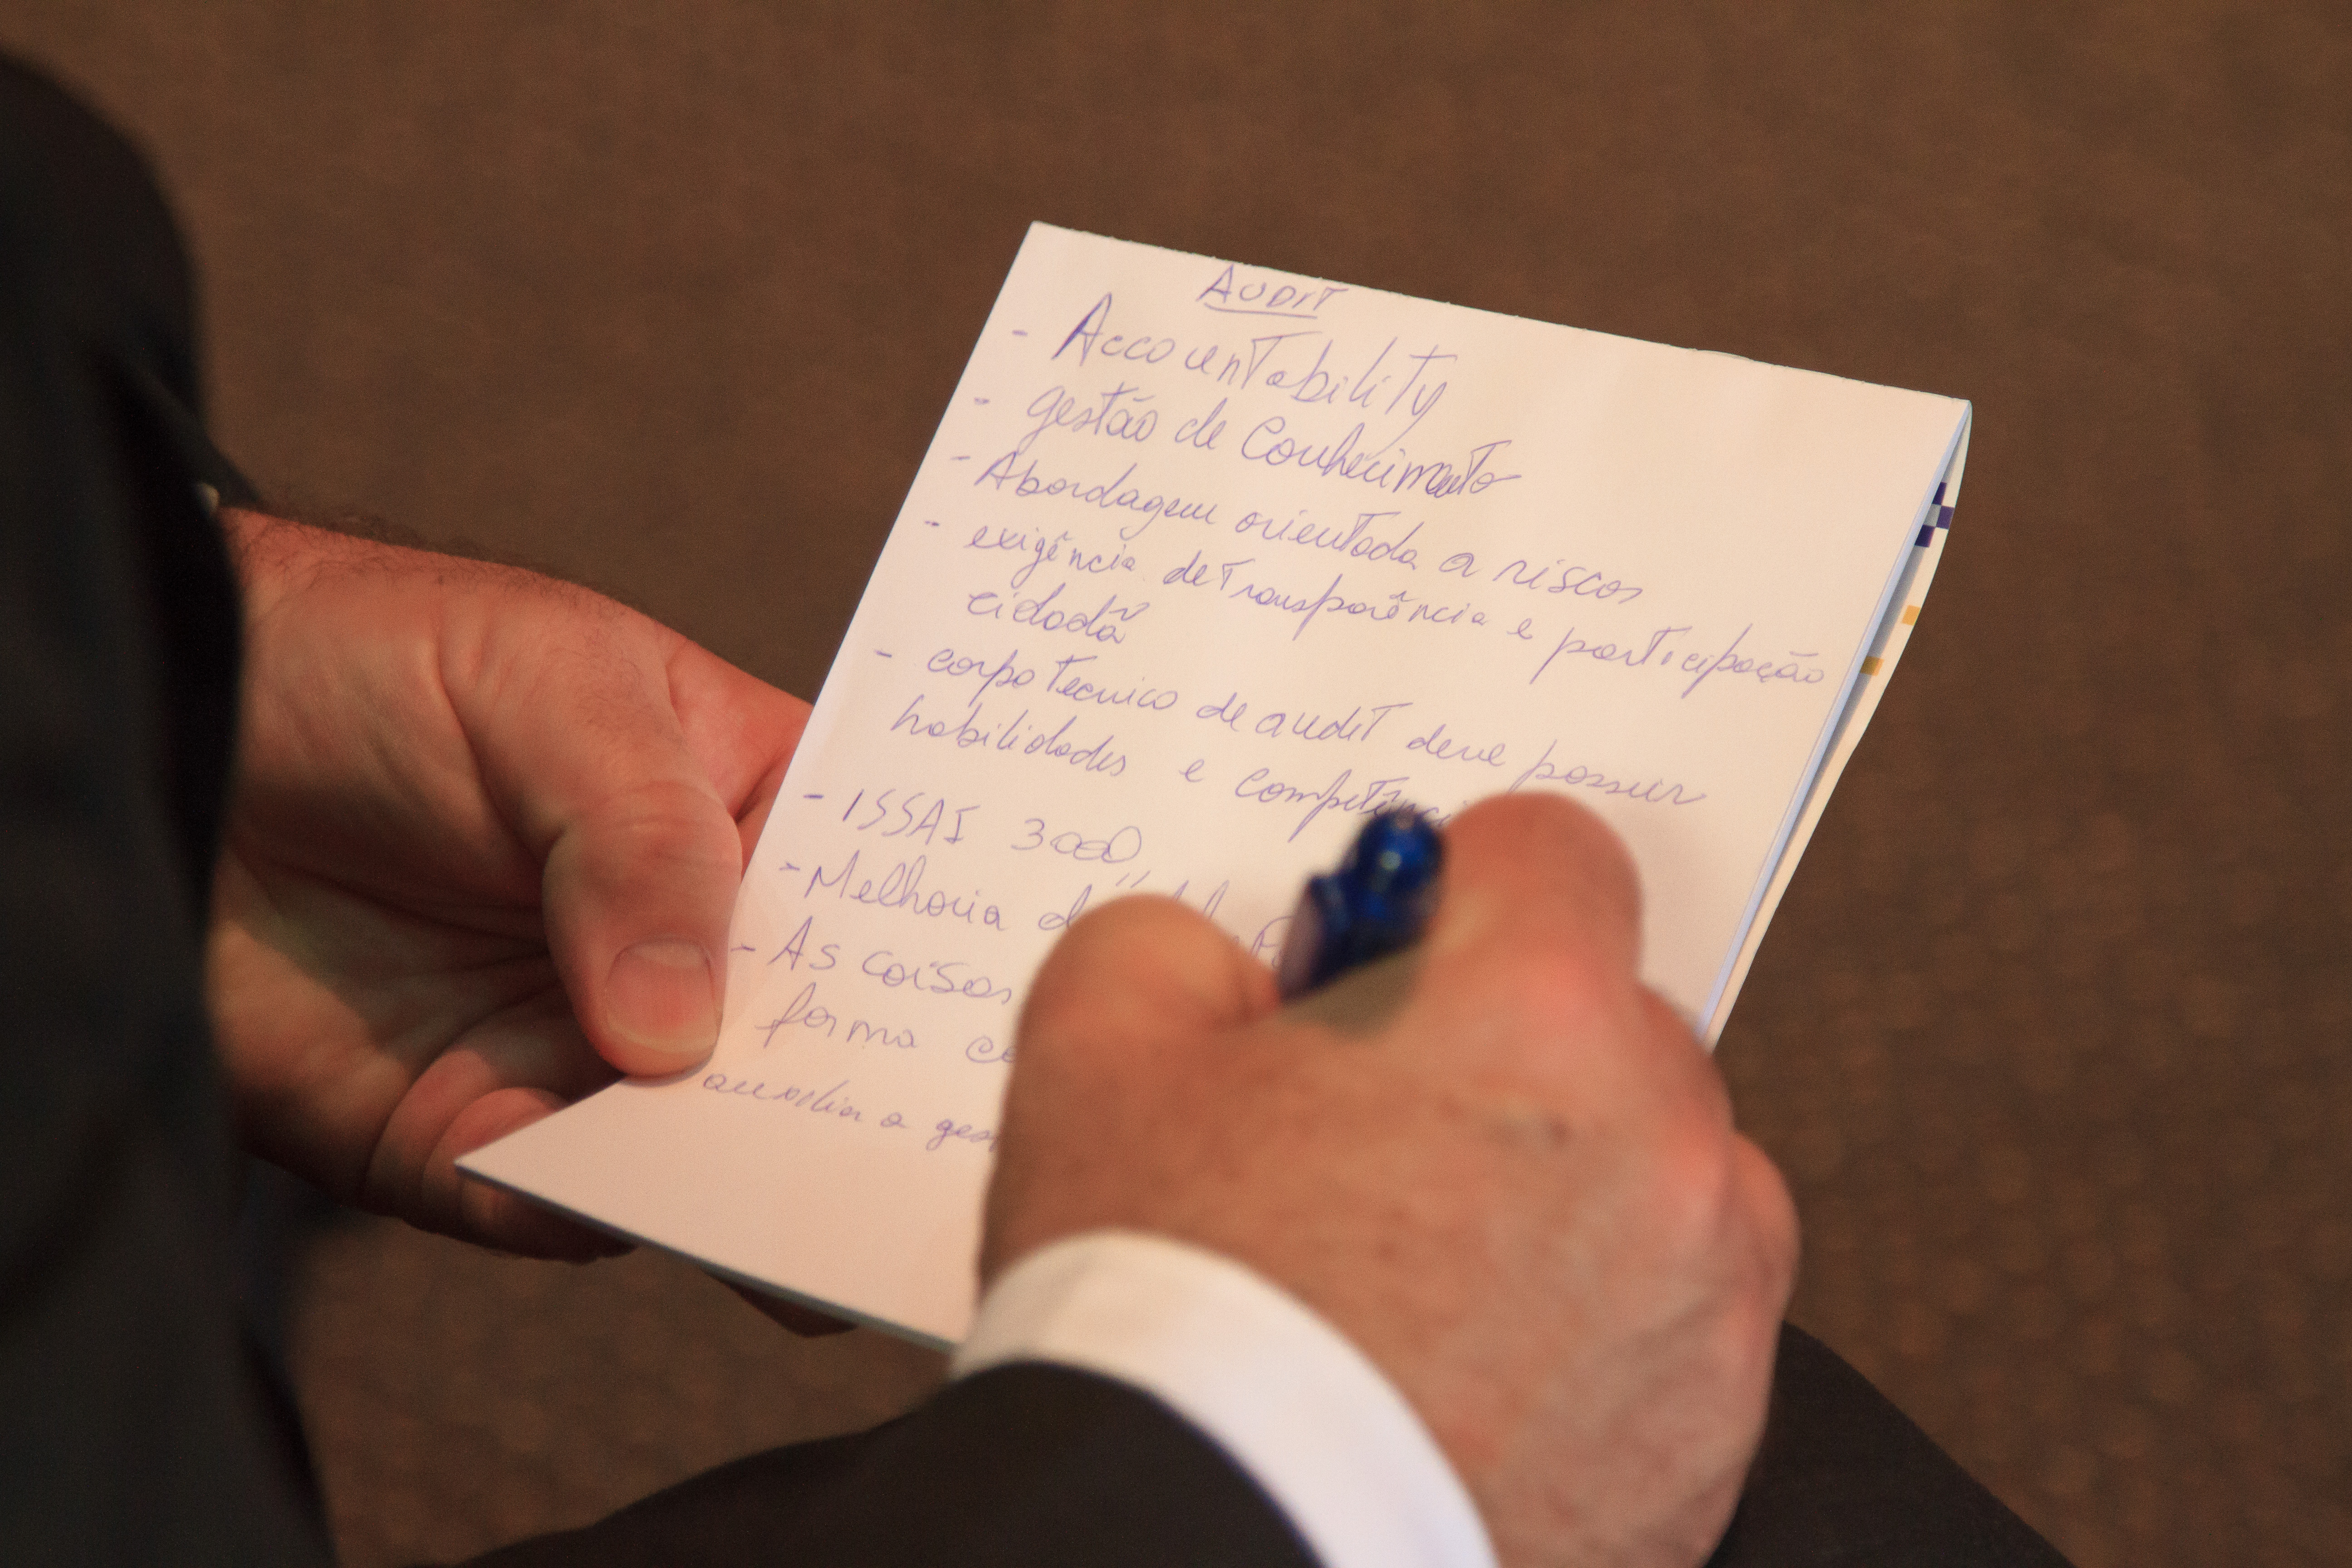 AUDIT
- Accountability
- gestão de Conhecimento
- Abordagem orientada a riscos
- exigência de Transparência e participação
cidadã
- corpo Tecnico de audit deve possuir
habilidades e Competênci
- ISSAI 3000
- Melhoria d
- As coisas
forma co
auxiliar a ges